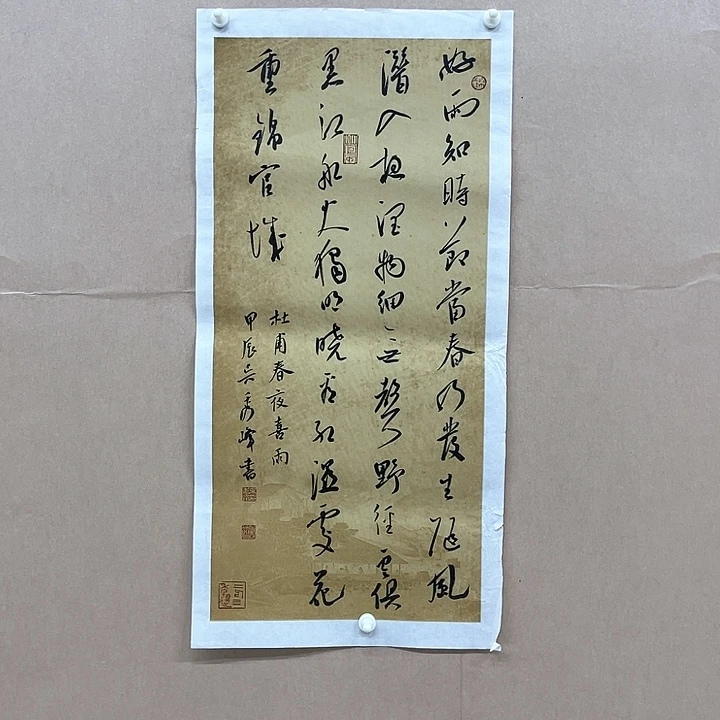 好雨知時節當春乃發生隨風
潛入夜潤物細無聲野徑雲俱
黑江船火獨明曉看紅濕處花
重錦官城
杜甫春夜喜雨
甲辰吳秀峰書